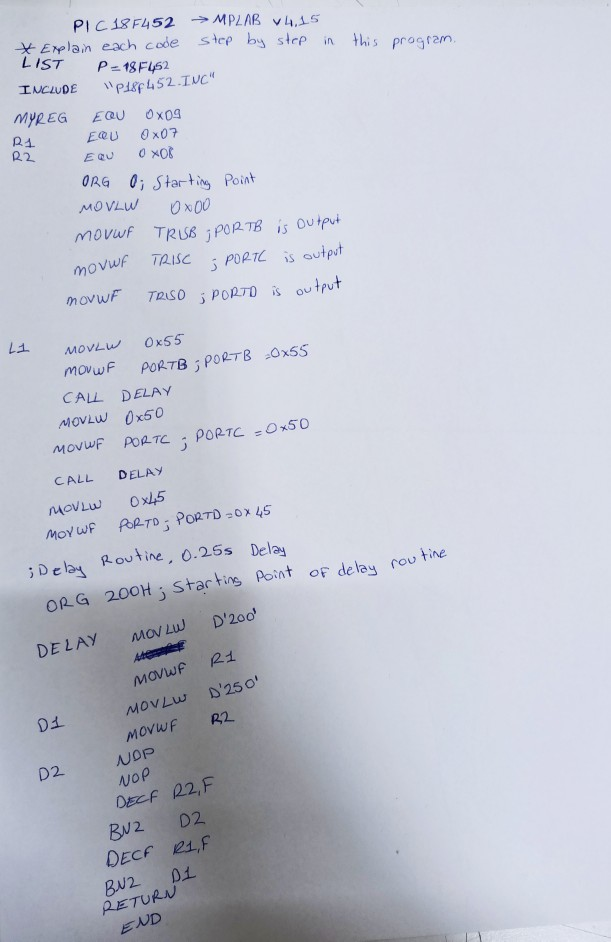 PIC18F452 → MPLAB v4.15
* Explain each code step by step in this program.
LIST P=18F452
INCLUDE "P18F452.INC"
MYREG EQU 0x09
R1 EQU 0x07
R2 EQU 0x08
ORG 0; Starting Point
MOVLW 0x00
MOVWF TRISB ; PORTB is output
MOVWF TRISC ; PORTC is output
MOVWF TRISD ; PORTD is output
L1 MOVLW 0x55
MOVWF PORTB ; PORTB =0x55
CALL DELAY
MOVLW 0x50
MOVWF PORTC ; PORTC =0x50
CALL DELAY
MOVLW 0x45
MOVWF PORTD ; PORTD=0x45
;Delay Routine, 0.25s Delay
ORG 200H ; Starting Point of delay routine
DELAY MOVLW D'200'
MOVWF R1
D1 MOVLW D'250'
MOVWF R2
D2 NOP
NOP
DECF R2,F
BNZ D2
DECF R1,F
BNZ D1
RETURN
END